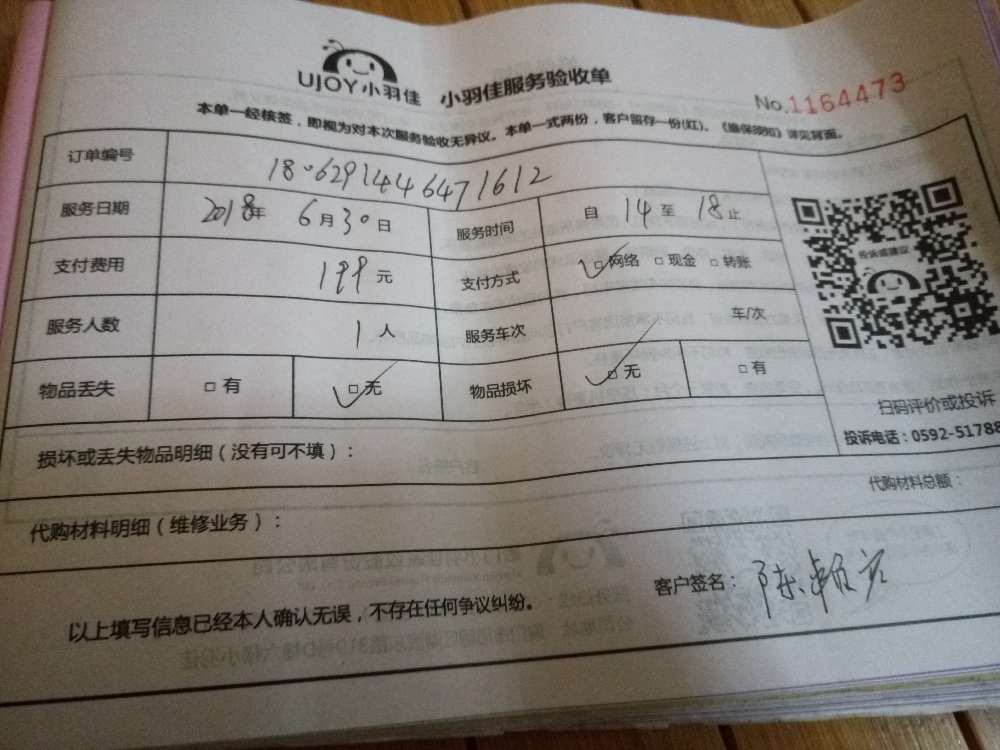 UJOY小羽佳 小羽佳服务验收单
No.1164473
本单一经核签，即视为对本次服务验收无异议。本单一式两份，客户留存一份(红)。《维保须知》详见背面。
订单编号 1806291446471612
服务日期 2018年 6月30日 服务时间 自 14 至 18 止
支付费用 199 元 支付方式 □网络 □现金 □转账
服务人数 1 人 服务车次 车/次
物品丢失 □有 □无 物品损坏 □无 □有
投诉或建议
扫码评价或投诉
投诉电话：0592-51788
损坏或丢失物品明细（没有可不填）：
代购材料明细（维修业务）： 代购材料总额：
以上填写信息已经本人确认无误，不存在任何争议纠纷。 客户签名：陈